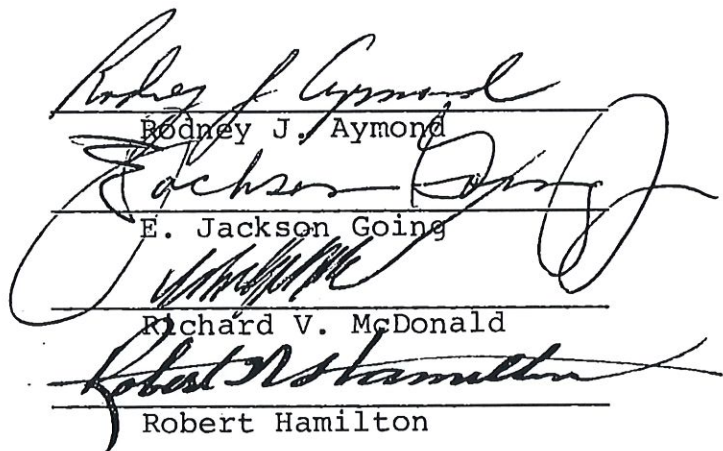 Rodney J Aymond
Rodney J. Aymond
E Jackson Going
E. Jackson Going
Richard V. McDonald
Robert Hamilton
Robert Hamilton